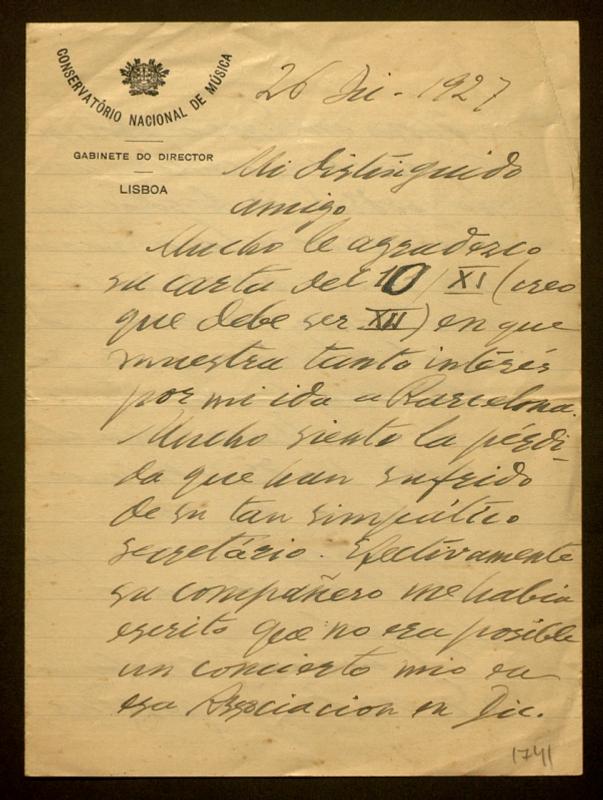 CONSERVATÓRIO NACIONAL DE MÚSICA
GABINETE DO DIRECTOR
LISBOA
26 Dic - 1927
Mi distinguido
amigo
Mucho le agradezco
su carta del 10/XI (creo
que debe ser XII) en que
muestra tanto interés
por mi ida a Barcelona.
Mucho siento la pérdi-
da que han sufrido
de su tan simpático
secretário. Efectivamente
su compañero me habia
escrito que no era posible
un concierto mio en
esa Asociacion en Dic.
1741